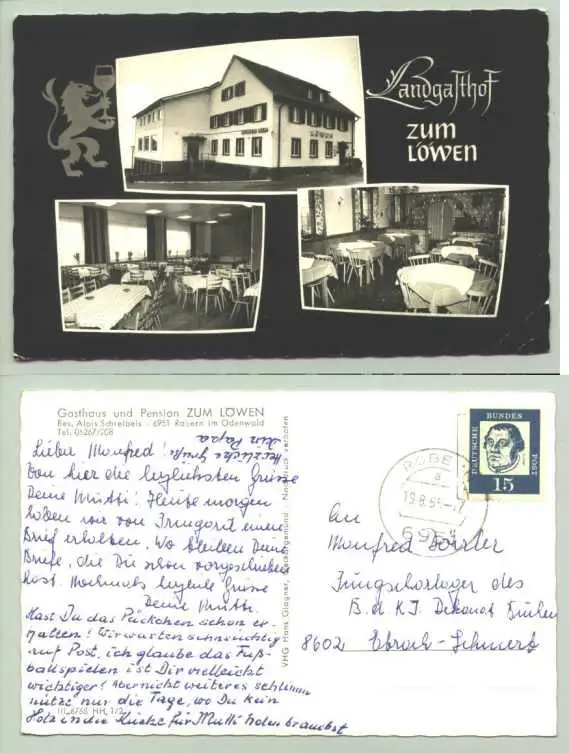 Landgasthof
ZUM
LÖWEN
Gasthaus und Pension ZUM LÖWEN
Bes. Alois Schreibeis - 6951 Robern im Odenwald
Tel. 06267/208
Herzliche Grüße
Dein Papa
Liebe Manfred!
Von hier die herzlichsten Grüsse
Deine Mutti! Heute morgen
haben wir von Irmgard einen
Brief erhalten. Wo bleiben Deine
Briefe, die Du schon vorgeschrieben
hast. Nochmals herzliche Grüsse
Deine Mutti.
Hast Du das Päckchen schon er-
halten! Wir warten sehnsüchtig
auf Post, ich glaube das Fuß-
ballspielen ist Dir vielleicht
wichtiger! Aber nicht weiter schlimm
nütze nur die Tage, wo Du kein
Holz in die Küche für Mutti holen brauchst
VHG Hans Glogner, Neckargemünd - Nachdruck verboten
DEUTSCHE
BUNDES
POST
15
19.8.65-17
6951
An
Manfred
Jungscharlager des
B.d.K.J. Dekanat
8602 Ebrach-